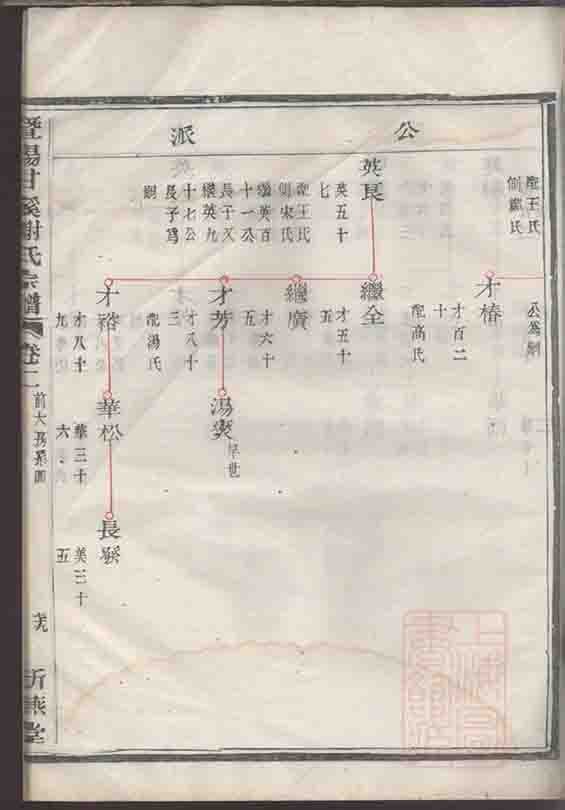 公派
配王氏
側戴氏
公爲嗣
才椿
才百二
十
配高氏
英長
英五十
七
配王氏
側宋氏
繼英百
十一公
長子又
繼英九
十七公
長子爲
嗣
繼全
才五十
五
繼廣
才六十
五
才芳
才八十
三
配湯氏
才裕
才八十
九
湯奕
早世
華松
華三十
六
長
美二十
五
暨陽甘溪謝氏宗譜
卷二
前大房系圖
上海圖書館藏